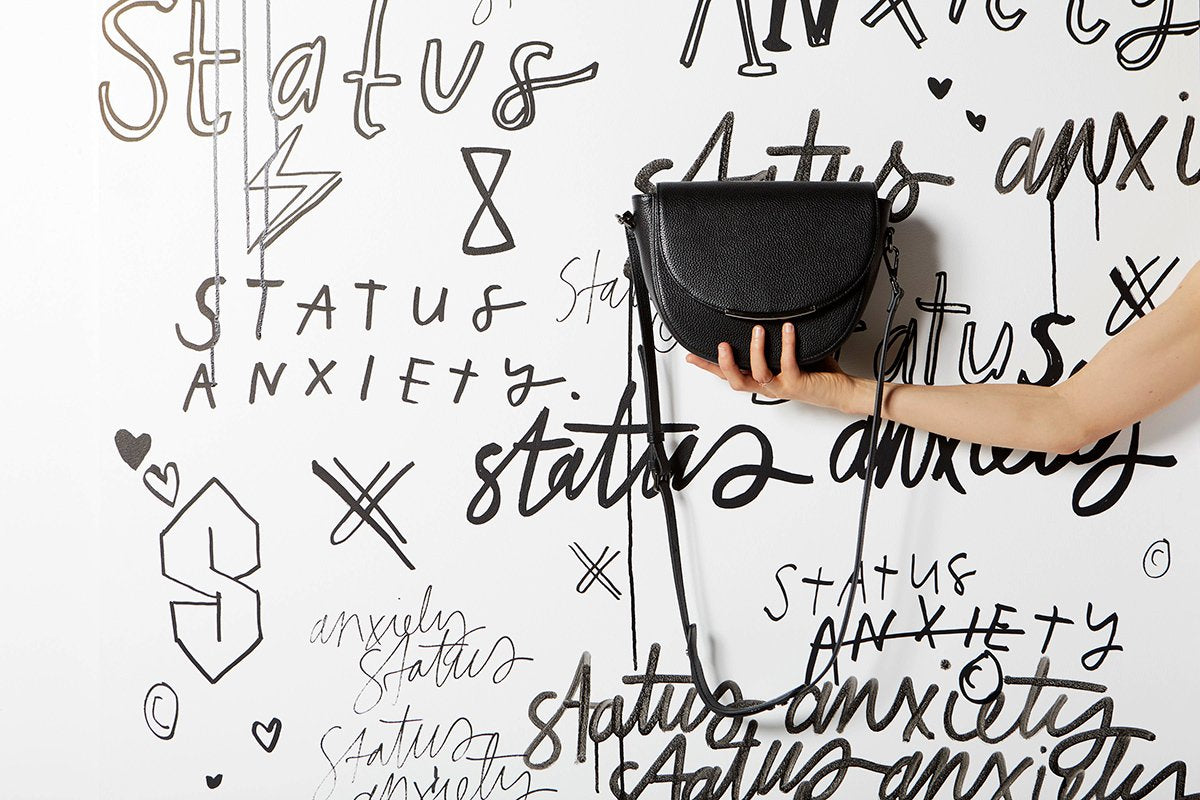 Status Anxiety
Status anxi
STATUS
ANXIETY.
Sta
atus
status anxiety
©
STATUS
ANXIETY
anxiety
status
©
©
Status anxiety
status
anxiety
status anxiety